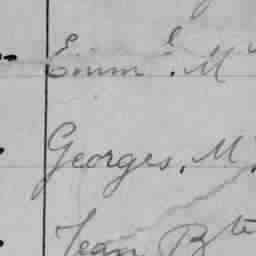 Emm.l M
Georges, M
Jean Bte